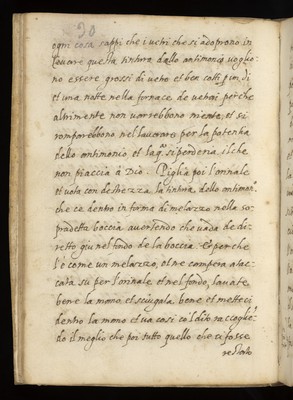 90
ogni cosa sappi che i vetri che si adoprono in
lavorar questa tintura dallo antimonio voglio
no essere grossi di vetro et ben cotti piu, di
et una notte nella fornace de vetrai perche
altrimente non varrebbono niente, et si
romperebbono nel lavorare per la potentia
dello antimonio et la q.ª si perderia, il che
non piaccia à Dio. Piglia poi l'orinale
et vota con destrezza la tintura dello antimon.º
che ce dentro in forma di melazzo nella so-
pradetta boccia avertendo che vada de di-
retto giu nel fondo de la boccia. Et perche
l'è come un melazzo, et ne rimpera atac-
cata sù per l'orinale et nel fondo, lavate
bene la mano et sciugala bene et metteci
dentro la mano et va cosi col dito raccoglie
do il meglio che poi tutto quello che ci fosse
restato